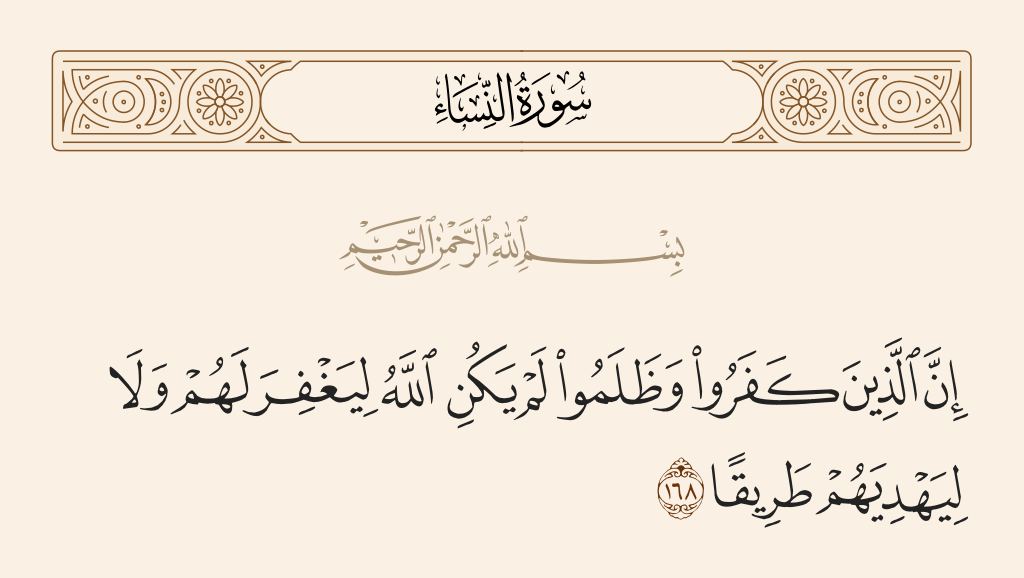 سُورَةُ النِّسَاءِ
بِسْمِ ٱللَّهِ ٱلرَّحْمَٰنِ ٱلرَّحِيمِ
إِنَّ ٱلَّذِينَ كَفَرُوا۟ وَظَلَمُوا۟ لَمْ يَكُنِ ٱللَّهُ لِيَغْفِرَ لَهُمْ وَلَا
لِيَهْدِيَهُمْ طَرِيقًا ١٦٨